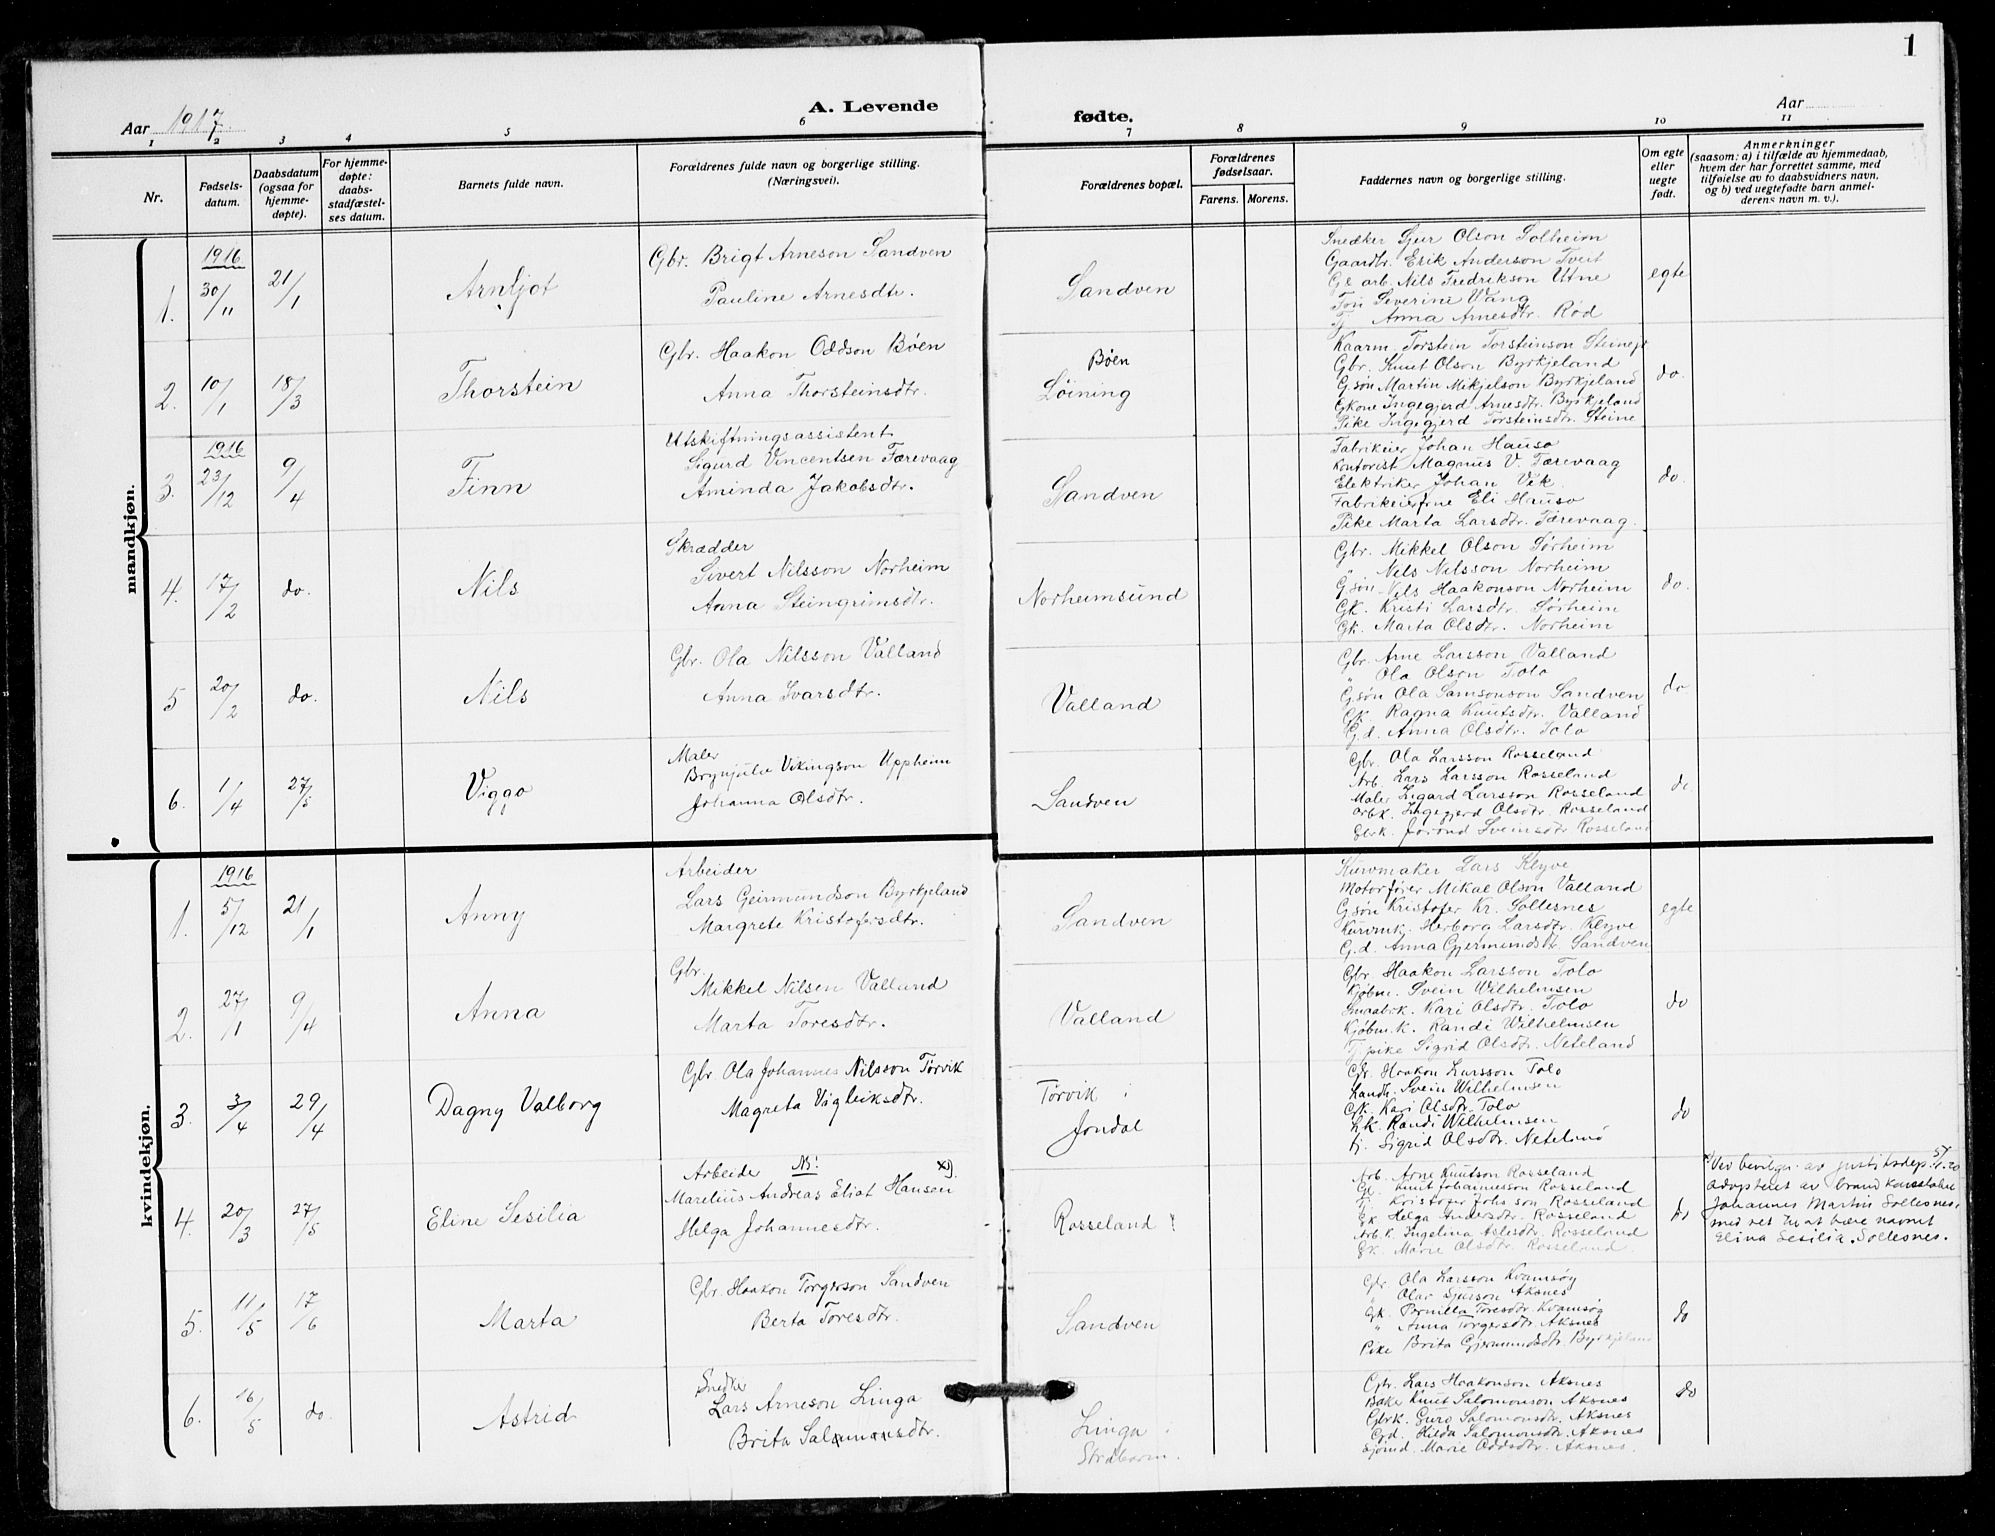 1
A. Levende fødte.
Aar 1917
Aar
1 2 3 4 5 6 7 8 9 10 11
Nr.
Fødsels-
datum.
Daabsdatum
(ogsaa for
hjemme-
døpte).
For hjemme-
døpte:
daabs-
stadfæstel-
ses datum.
Barnets fulde navn.
Forældrenes fulde navn og borgerlige stilling.
(Næringsvei).
Forældrenes bopæl.
Forældrenes
fødselsaar.
Farens. Morens.
Faddernes navn og borgerlige stilling.
Om egte
eller
uegte
født.
Anmerkninger
(saasom: a) i tilfælde av hjemmedaab,
hvem der har forrettet samme, med
tilføielse av to daabsvidners navn,
og b) ved uegtefødte barn anmel-
derens navn m. v.).
mandkjøn.
1. 1916 30/11 21/1
Arnljot
Gbr. Brigt Arneson Sandven
Pauline Arnesdtr.
Sandven
Snedker Sjur Olson Solheim
Gaardbr. Erik Anderson Tveit
Nils Fredrikson Utne
Severine Vang
Anna Arnesdtr. Rød
egte
2. 10/1 18/3
Thorstein
Gbr. Haakon Oddson Bøen
Anna Thorsteinsdtr.
Bøen
Løining
Torstein Torsteinson
Gbr. Knut Olson Byrkjeland
Gsøn Martin Mikjelson Byrkjeland
Gkone Ingegjerd Arnesdtr. Byrkjeland
Pike Ingegjerd Torsteinsdtr. Steine
do.
3. 1916 23/12 9/4
Finn
Utskiftningsassistent
Sigurd Vincentsen Færevaag
Aminda Jakobsdtr.
Sandven
Johan Hauso
Kontorist Magnus V. Færevaag
Elektriker Johan Vik
Eli Hauso
Pike Marta Larsdtr. Færevaag
do.
4. 17/2 do.
Nils
Skrædder
Sivert Nilsson Norheim
Anna Steingrimsdtr.
Norheimsund
Gbr. Mikkel Olson Sørheim
" Nils Nilsson Norheim
Gsøn Nils Haakonson Norheim
Gk. Kristi Larsdtr. Sørheim
Gk. Marta Olsdtr. Norheim
do.
5 20/2 do.
Nils
Gbr. Ola Nilsson Valland
Anna Ivarsdtr.
Valland
Gbr. Arne Larsson Valland
" Ola Olson Tolo
Gsøn Ola Samsonson Sandven
Gk. Ragna Knutsdtr. Valland
G.d. Anna Olsdtr. Tolo
do
6. 1/4 27/5
Viggo
Maler
Brynjulv Vikingson Uppheim
Johanna Olsdtr.
Sandven
Gbr. Ola Larsson Rosseland
Arb. Lars Larsson Rosseland
Maler Ingard Larsson Rosseland
Arbk. Ingegjerd Olsdtr. Rosseland
Jorond Sveinsdtr Rosseland
do
kvindekjøn.
1. 1916 5/12 21/1
Anny
Arbeider
Lars Geirmundson Byrkjeland
Margrete Kristofersdtr.
Sandven
Kurvmaker Lars Klyve
Motorfører Mikal Olson Valland
Gsøn Kristofer Kr. Sollesnes
Kurvmk. Herborg Larsdtr. Klyve
G.d. Anna Gjermundsdtr. Sandven
egte
2. 27/1 9/4
Anna
Gbr.
Mikkel Nilsen Valland
Marta Toresdtr.
Valland
Gbr. Haakon Larsson Tolo
Kjøbm. Svein Wilhelmsen
Kari Olsdtr. Tolo
Kjøbm.k. Randi Wilhelmsen
Tj pike Sigrid Olsdtr. Neteland
do
3. 3/4 29/4
Dagny Valborg
Gbr. Ola Johannes Nilsson Tørvik
Magreta Vigleiksdtr.
Tørvik i
Jondal
Gbr. Haakon Larsson Tolo
Landh. Svein Wilhelmsen
Gk. Kari Olsdtr. Tolo
Lk. Randi Wilhelmsen
Tj. Sigrid Olsdtr. Neteland
do
4. 20/3 27/5
Eline Sesilia
Arbeide NB! x)
Marelius Andreas Eliot Hansen
Helga Johannesdtr.
Rosseland
Arb. Arne Knutson Rosseland
Knut Johannesson Rosseland
Kristofer Johs son Rosseland
Gk Helga Andersdtr. Rosseland
Arb.k. Ingelina Aslesdtr. Rosseland
Gk. Marie Olsdtr. Rosseland.
do
x) Ved bevilgn. av justitsdep.
adopteret av brandkonstabel
Johannes Martin Sollesnes,
med ret til at bære navnet
Elina Sesilia Sollesnes.
5. 11/5 17/6
Marta
Gbr Haakon Torgerson Sandven
Berta Toresdtr.
Sandven
Gbr Ola Larsson Kvamsøy
" Olav Sjurson Aksnes
Gk. Pernilla Toresdtr. Kvamsøy
" Anna Torgersdtr. Aksnes
Pike Brita Gjermundsdtr. Byrkjeland
do
6. 16/5 do.
Astrid
Snedker
Lars Arneson Linga
Brita Salamonsdtr.
Linga i
Strandebarm.
Gbr. Lars Haakonson Aksnes
Baker Knut Salomonson Aksnes
Gbrk. Guro Salomonsdtr. Aksnes
G.d. Hilda Salomonsdtr. Aksnes
Marie Oddsdtr. Aksnes.
do